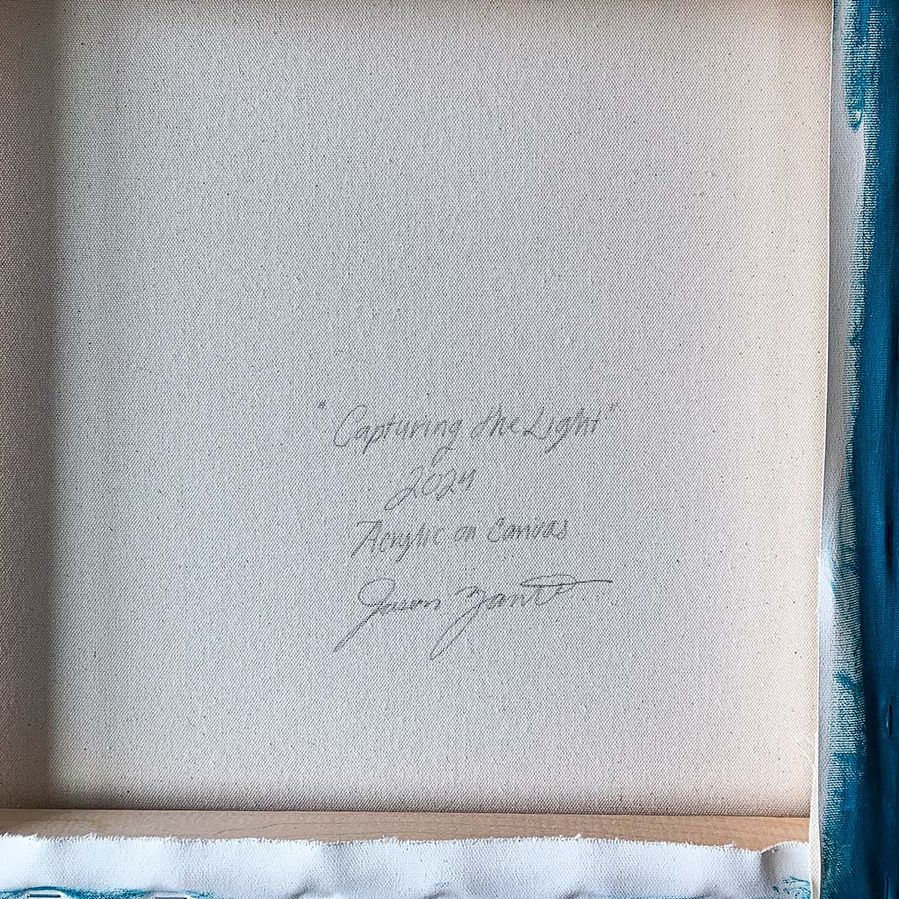 "Capturing the Light"
2024
Acrylic on Canvas
Jason